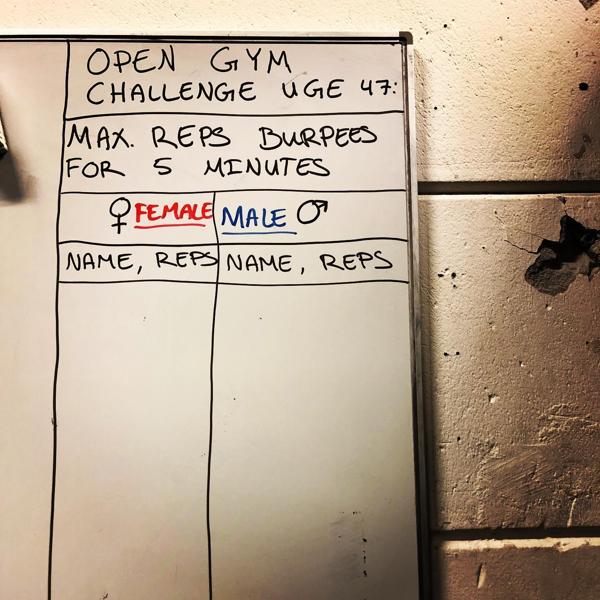 OPEN GYM
CHALLENGE UGE 47:
MAX. REPS BURPEES
FOR 5 MINUTES
♀ FEMALE MALE ♂
NAME, REPS NAME, REPS